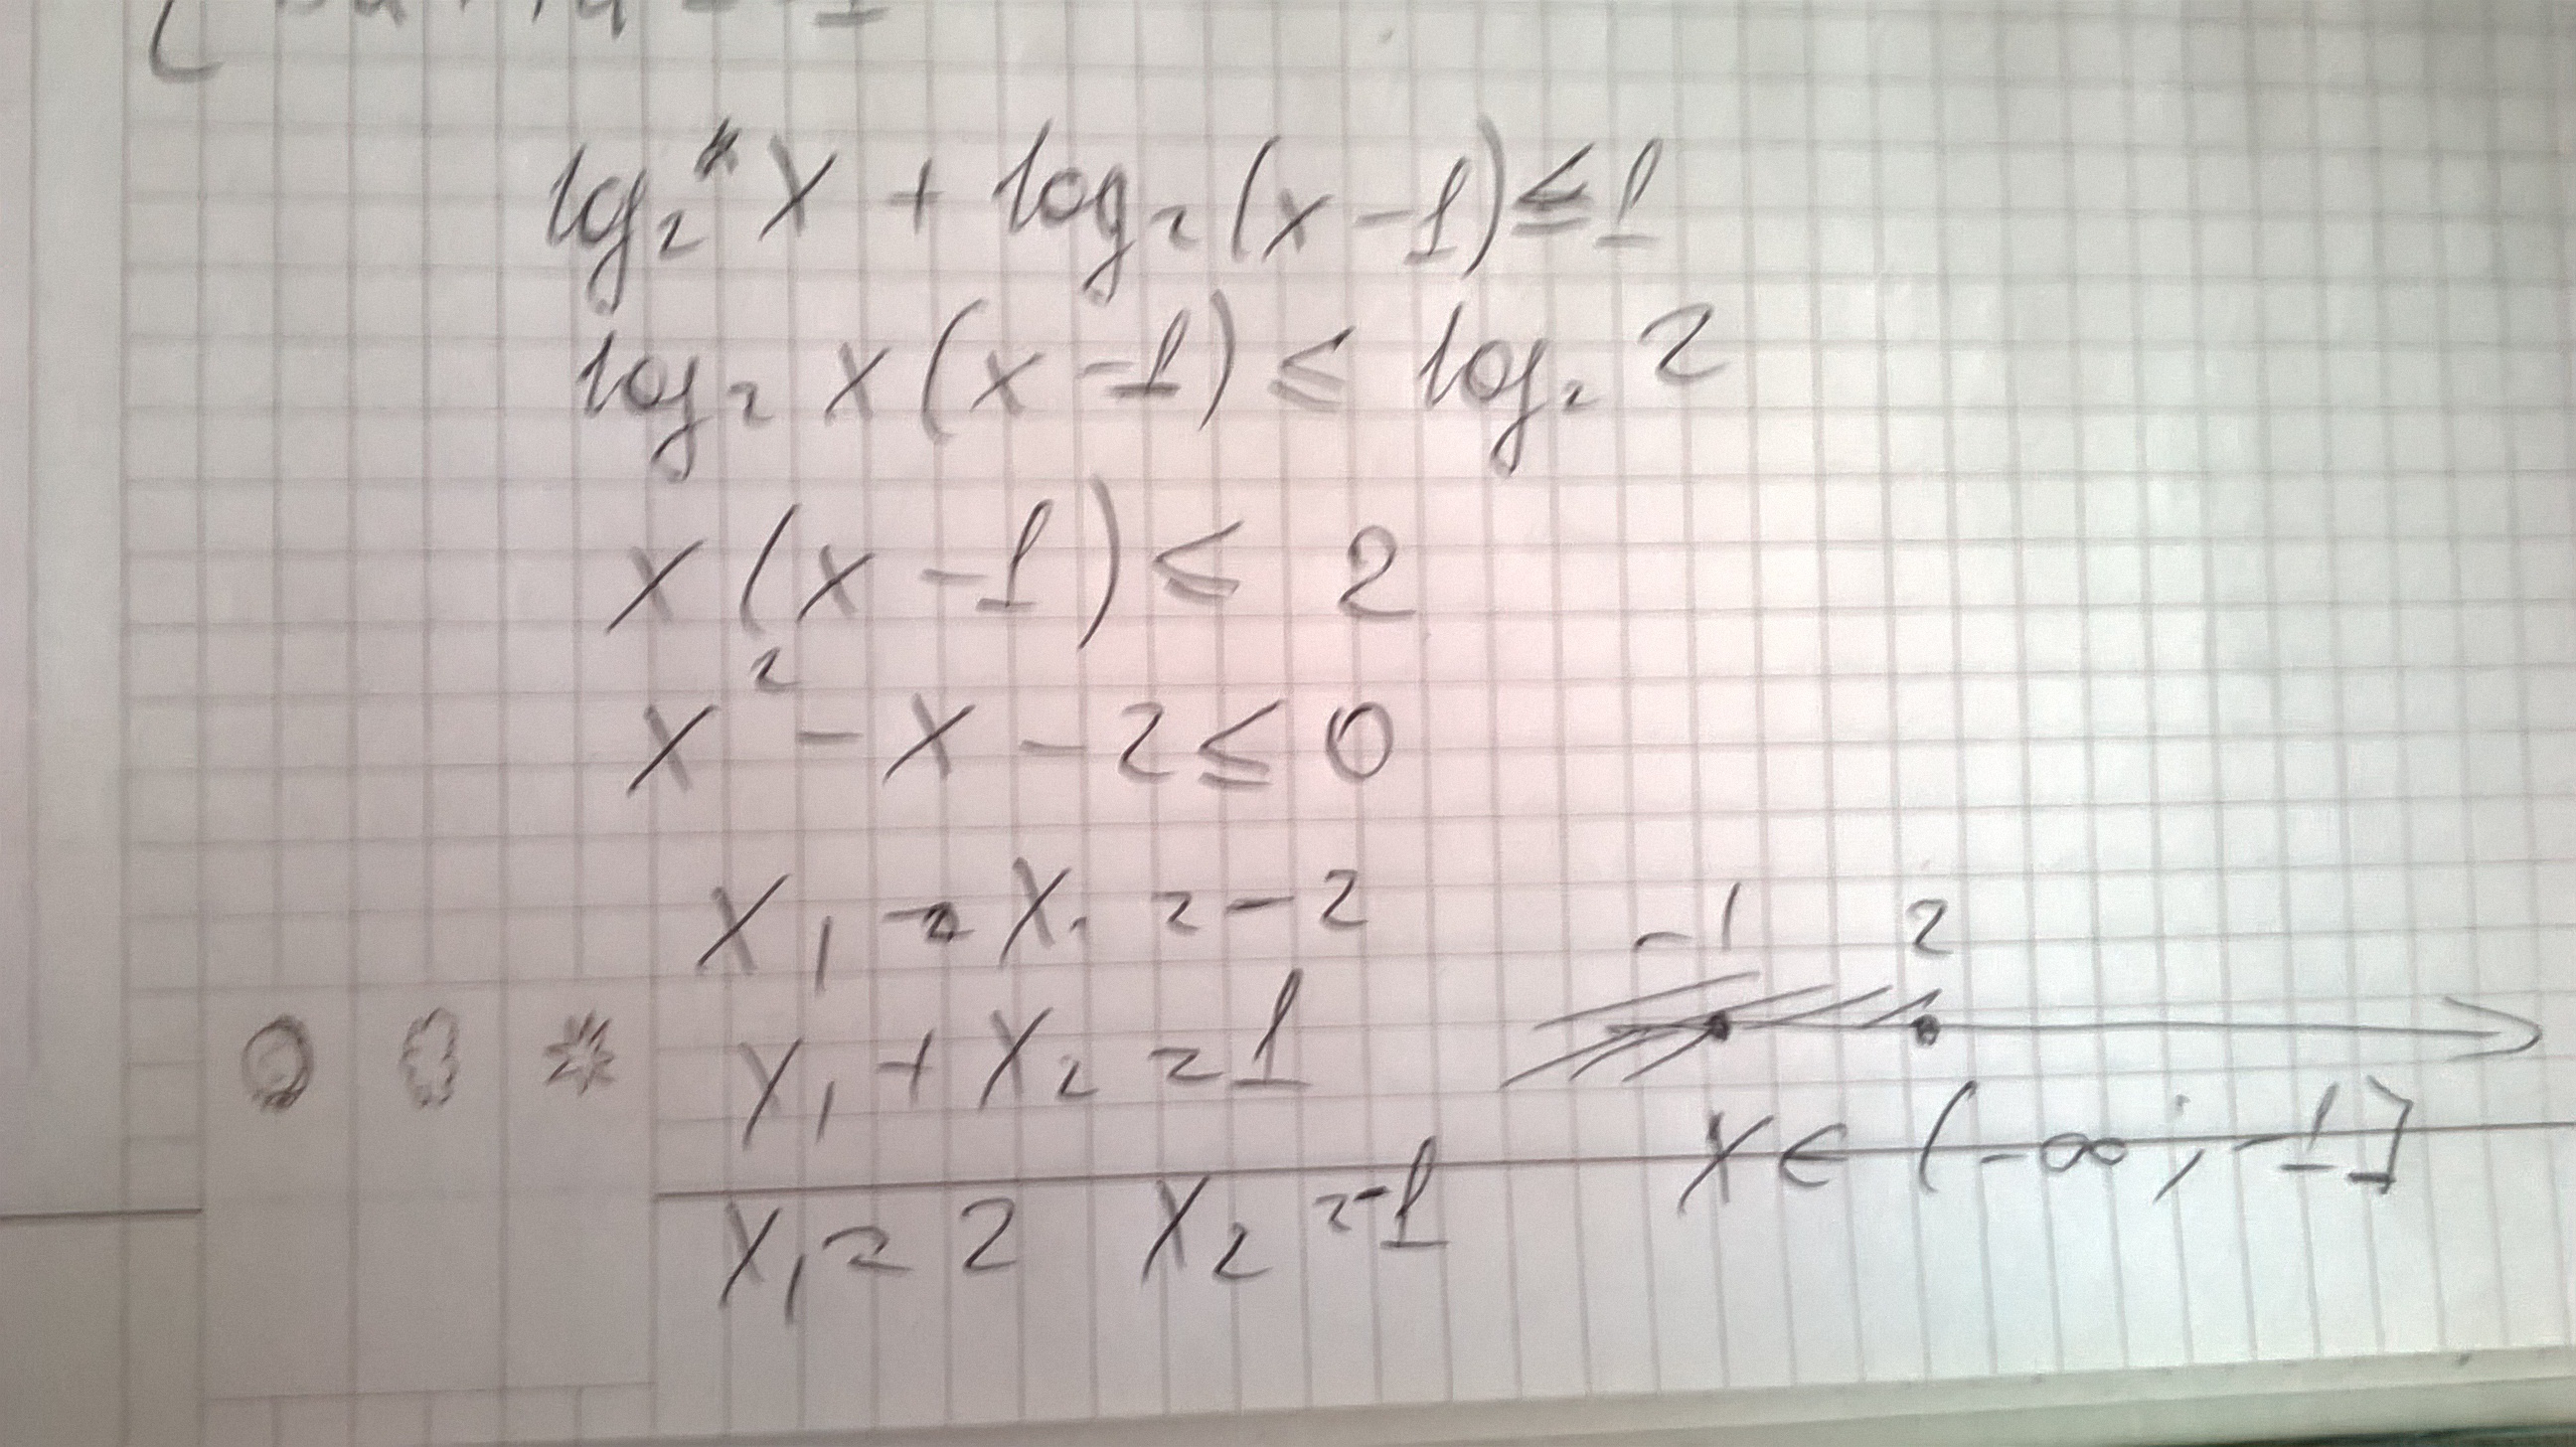 log₂ x + log₂(x-1) ≤ 1
log₂ x(x-1) ≤ log₂ 2
x(x-1) ≤ 2
x² - x - 2 ≤ 0
x₁ · x₂ = -2
x₁ + x₂ = 1
x₁ = 2 x₂ = -1
-1 2
x ∈ (-∞; -1]